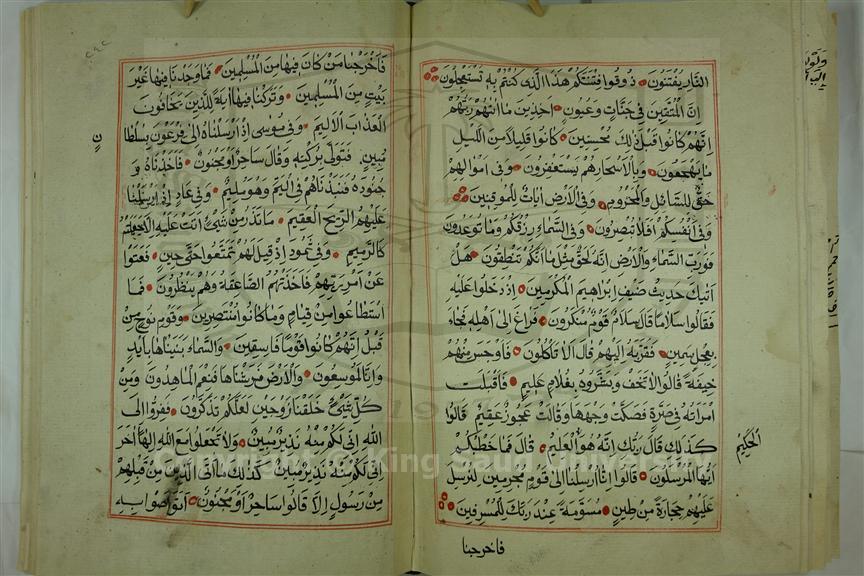 النار يفتنون ذوقوا فتنتكم هذا الذى كنتم به تستعجلون
ان المتقين فى جنات وعيون اخذين ما اتيهم ربهم
انهم كانوا قبل ذلك محسنين كانوا قليلا من الليل
ما يهجعون وبالاسحار هم يستغفرون وفى اموالهم
حق للسائل والمحروم وفى الارض ايات للموقنين
وفى انفسكم افلا تبصرون وفى السماء رزقكم وما توعدون
فورب السماء والارض انه لحق مثل ما انكم تنطقون هل
اتيك حديث ضيف ابراهيم المكرمين اذ دخلوا عليه
فقالوا سلاما قال سلام قوم منكرون فراغ الى اهله فجاء
بعجل سمين فقربه اليهم قال الا تأكلون فاوجس منهم
خيفة قالوا لا تخف وبشروه بغلام عليم فاقبلت
امراته فى صرة فصكت وجهها وقالت عجوز عقيم قالوا
كذلك قال ربك انه هو العليم قال فما خطبكم
الحكيم
ايها المرسلون قالوا انا ارسلنا الى قوم مجرمين لنرسل
عليهم حجارة من طين مسومة عند ربك للمسرفين
فاخرجنا
فاخرجنا من كان فيها من المسلمين فما وجدنا فيها غير
بيت من المسلمين وتركنا فيها اية للذين يخافون
العذاب الاليم وفى موسى اذ ارسلناه الى فرعون بسلطا
ن
مبين فتولى بركنه وقال ساحر او مجنون فاخذناه و
جنوده فنبذناهم فى اليم وهو مليم وفى عاد اذ ارسلنا
عليهم الريح العقيم ما تذر من شىء اتت عليه الا جعلته
كالرميم وفى ثمود اذ قيل لهم تمتعوا حتى حين فعتوا
عن امر ربهم فاخذتهم الصاعقة وهم ينظرون فما
استطاعوا من قيام وما كانوا منتصرين وقوم نوح من
قبل انهم كانوا قوما فاسقين والسماء بنيناها بايد
وانا لموسعون والارض فرشناها فنعم الماهدون ومن
كل شىء خلقنا زوجين لعلكم تذكرون ففروا الى
الله انى لكم منه نذير مبين ولا تجعلوا مع الله الها اخر
انى لكم منه نذير مبين كذلك ما اتى الذين من قبلهم
من رسول الا قالوا ساحر او مجنون اتواصوا به
Copyright © King Saud University